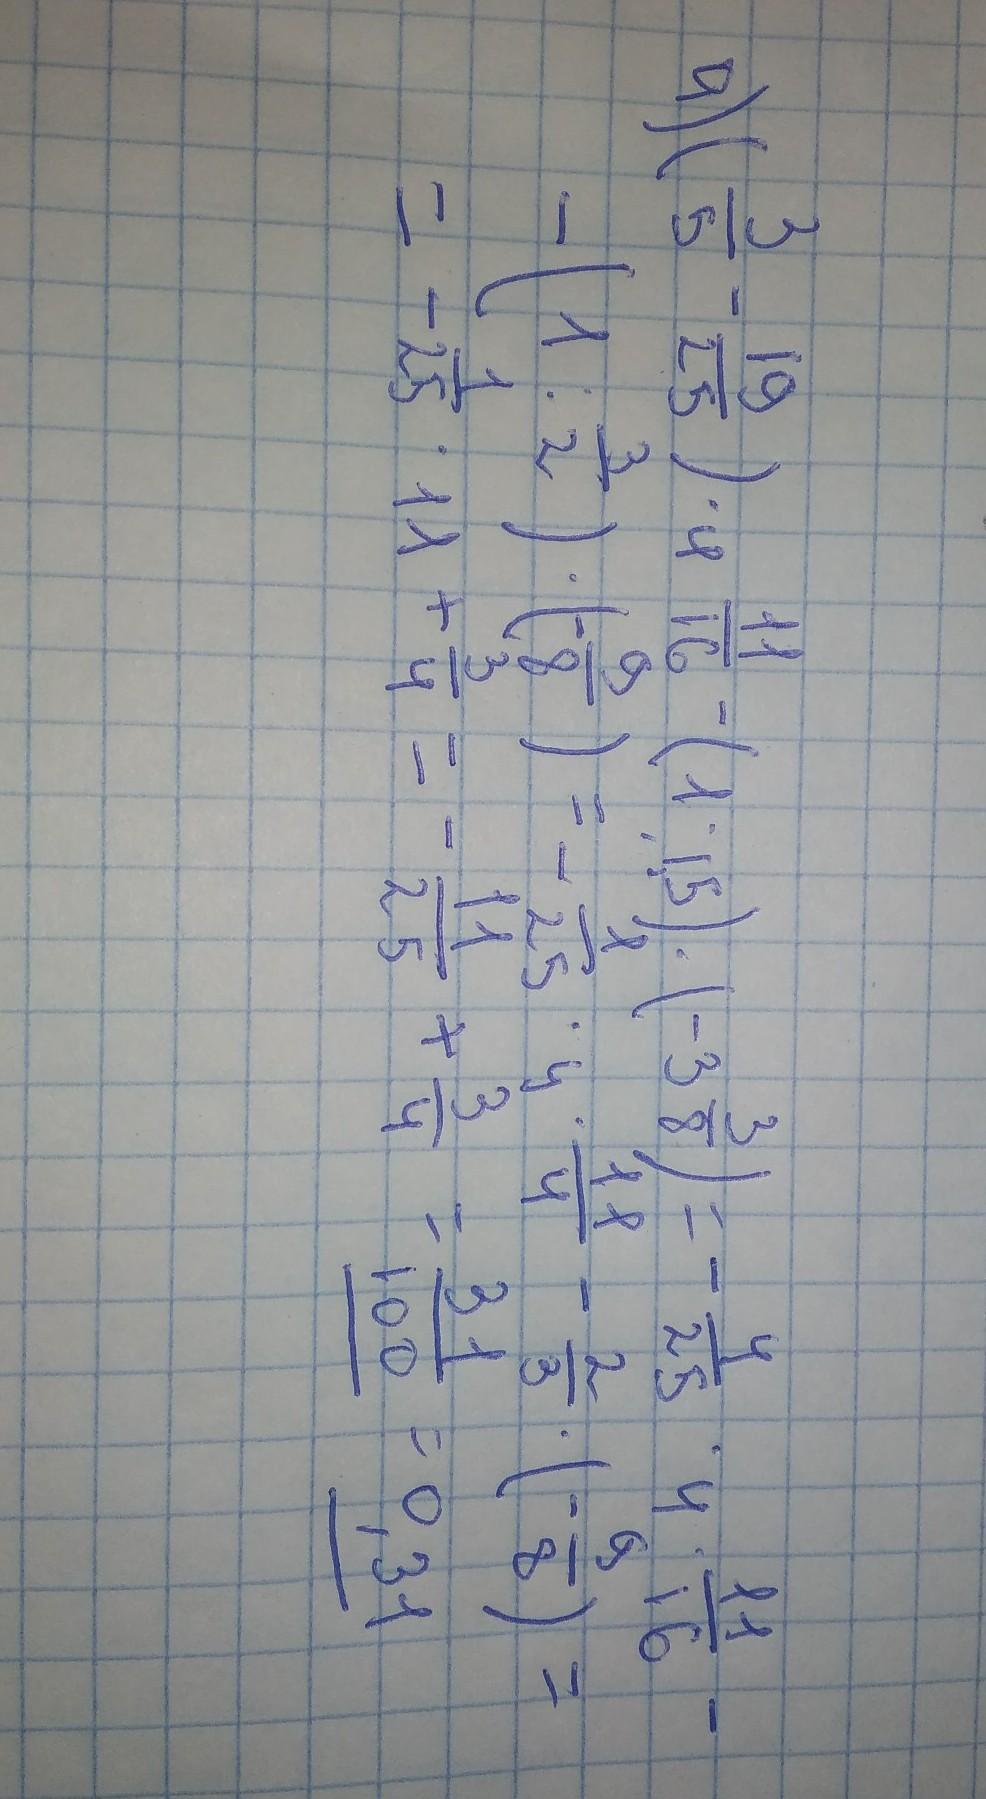 a) (3/5 - 19/25) · 4 11/16 - (1 : 1,5) · (-3 3/8) = - 4/25 · 4 · 11/16 -
- (1 : 3/2) · (- 9/8) = - 1/25 · 4 · 11/4 - 2/3 · (- 9/8) =
= - 1/25 · 11 + 3/4 = - 11/25 + 3/4 = 31/100 = 0,31